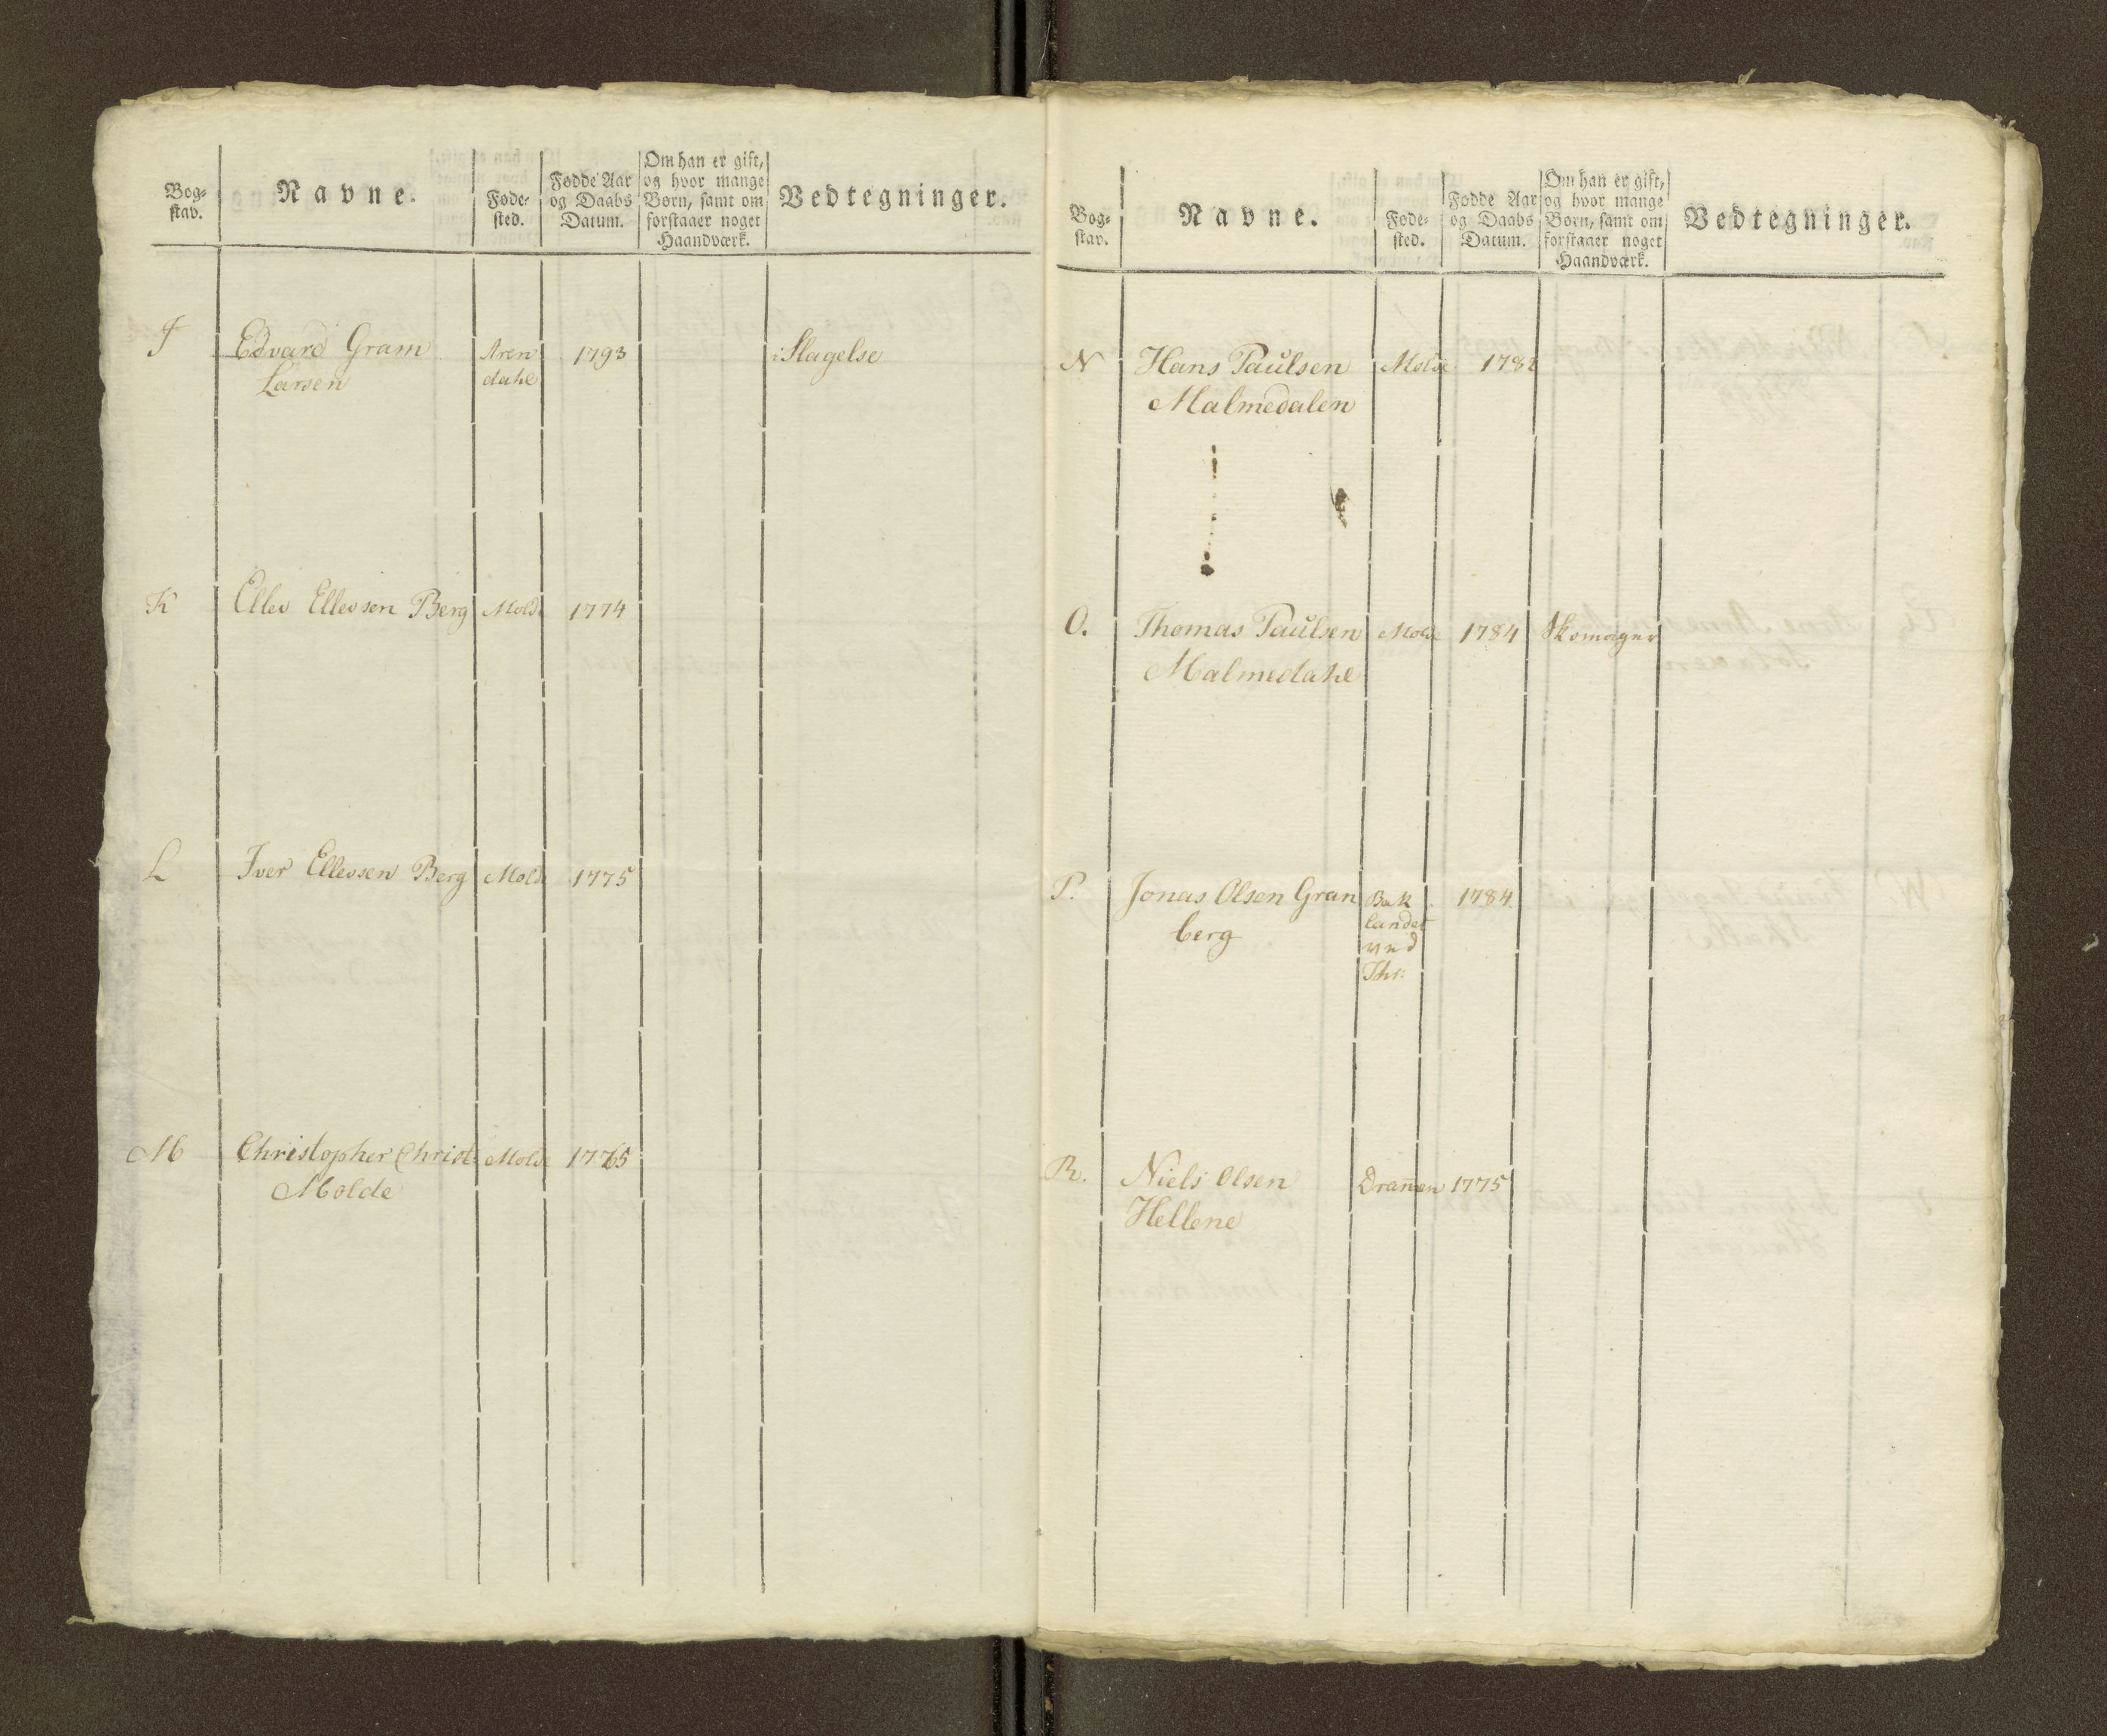 Bog=
stav.
Navne.
Føde=
sted.
Fødde Aar
og Daabs
Datum.
Om han er gift,
og hvor mange
Børn, samt om
forstaaer noget
Haandværk.
Vedtegninger.
J Edvard Gram Aren 1793 i Slagelse
Larsen dahl
K Ellev Ellevsen Berg Molde 1774
L Iver Ellevsen Berg Molde 1775
M Christopher Christ: Molde 1775
Molde
Bog=
stav.
Navne.
Føde=
sted.
Fødde Aar
og Daabs
Datum.
Om han er gift,
og hvor mange
Børn, samt om
forstaaer noget
Haandværk.
Vedtegninger.
N Hans Paulsen Molde 1782
Malmedalen
O. Thomas Paulsen Molde 1784 Skomager
Malmedahl
P. Jonas Olsen Gran Bak 1784
berg landet
ved
Thr:
R. Niels Olsen Dram̄en 1775
Hellene